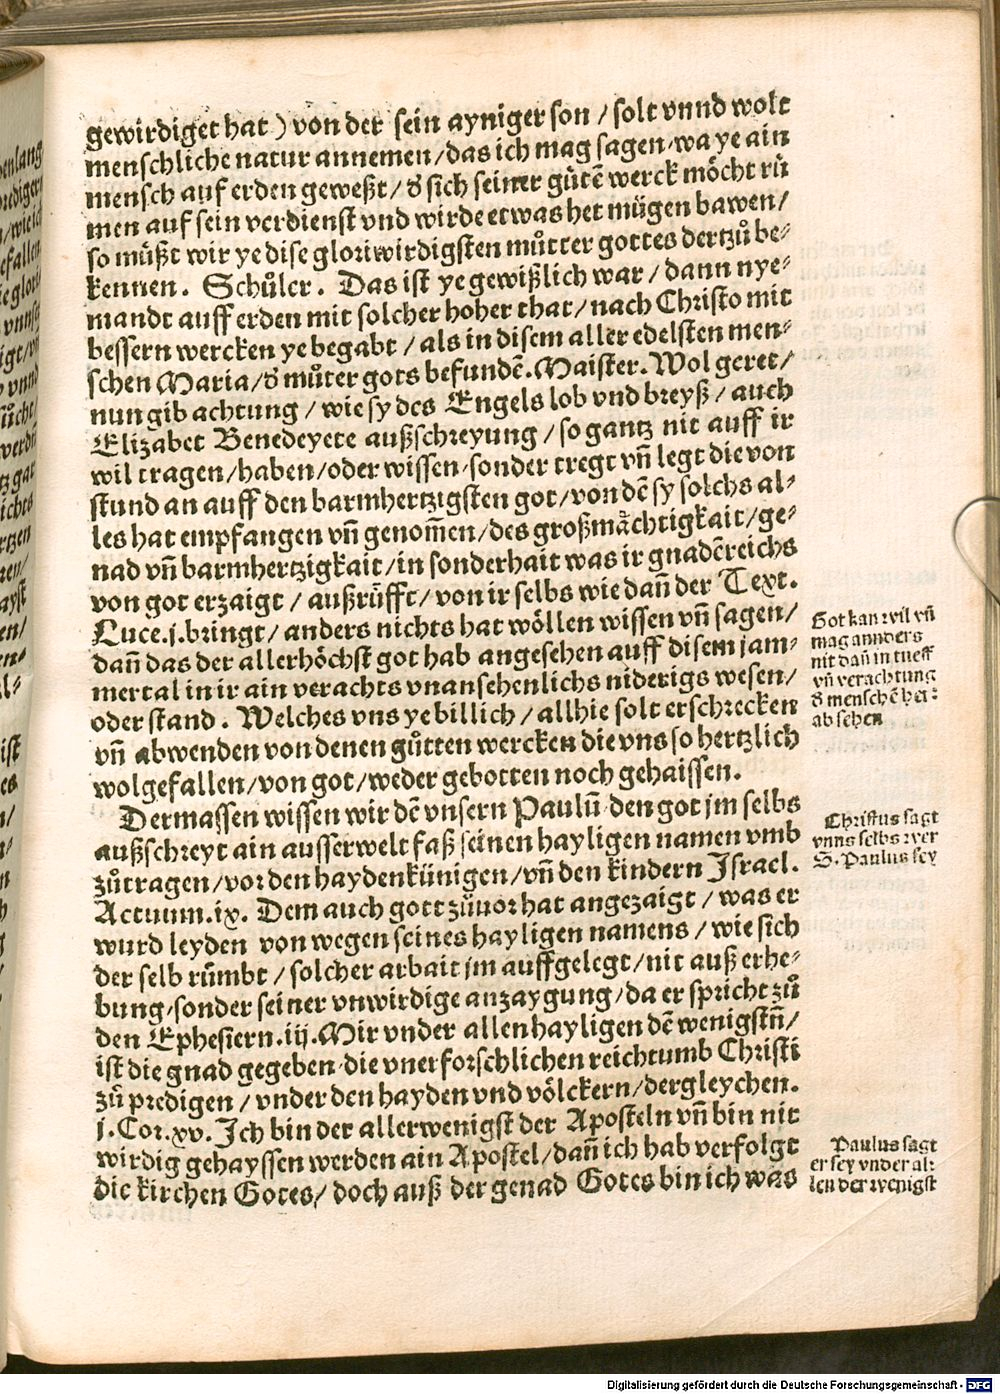 gewirdiget hat ) von der sein ayniger son / solt vnnd wolt
menschliche natur annemen / das ich mag sagen / wa ye ain
mensch auf erden geweßt / d̕ sich seiner gůtē werck möcht rů
men auf sein verdienst vnd wirde etwas het mügen bawen /
so müßt wir ye dise gloriwirdigsten můtter gottes dertzů be⸗
kennen. Schůler. Das ist ye gewißlich war / dann nye⸗
mandt auff erden mit solcher hoher that / nach Christo mit
bessern wercken ye begabt / als in disem aller edelsten men⸗
schen Maria / d̕ můter gots befundē. Maister. Wol geret /
nun gib achtung / wie sy des Engels lob vnd breyß / auch
Elizabet Benedeyete außschreyung / so gantz nit auff ir
wil tragen / haben / oder wissen / sonder tregt vñ legt die von
stund an auff den barmhertzigsten got / von dē sy solchs al⸗
les hat empfangen vñ genom̄en / des großmächtigkait / ge⸗
nad vñ barmhertzigkait / in sonderhait was ir gnadēreichs
von got erzaigt / außrüfft / von ir selbs wie dañ der Text.
Luce.j. bringt / anders nichts hat wöllen wissen vñ sagen /
dañ das der allerhöchst got hab angesehen auff disem jam⸗
mertal in ir ain verachts vnansehenlichs niderigs wesen /
oder stand. Welches vns ye billich / allhie solt erschrecken
vñ abwenden von denen gůtten wercken die vns so hertzlich
wolgefallen / von got / weder gebotten noch gehaissen.
Dermassen wissen wir dē vnsern Paulū den got jm selbs
außschreyt ain ausserwelt faß seinen hayligen namen vmb
zůtragen / vor den haydenkünigen / vñ den kindern Israel.
Actuum.ix. Dem auch gott zůuor hat angezaigt / was er
wurd leyden von wegen seines hayligen namens / wie sich
der selb růmbt / solcher arbait jm auffgelegt / nit auß erhe⸗
bung / sonder seiner vnwirdige anzaygung / da er spricht zů
den Ephesiern.iij. Mir vnder allen hayligen dē wenigstñ /
ist die gnad gegeben die vnerforschlichen reichtumb Christi
zů predigen / vnder den hayden vnd völckern / dergleychen.
j.Cor.xv. Ich bin der allerwenigst der Aposteln vñ bin nit
wirdig gehayssen werden ain Apostel / dañ ich hab verfolgt
die kirchen Gotes / doch auß der genad Gotes bin ich was
Got kan wil vñ
mag annders
nit dañ in tueff
vñ verachtung
d̕ menschē her⸗
ab sehen
Christus sagt
vnns selbs wer
S. Paulus sey
Paulus sagt
er sey vnder al⸗
len der wenigst
Digitalisierung gefördert durch die Deutsche Forschungsgemeinschaft - DFG